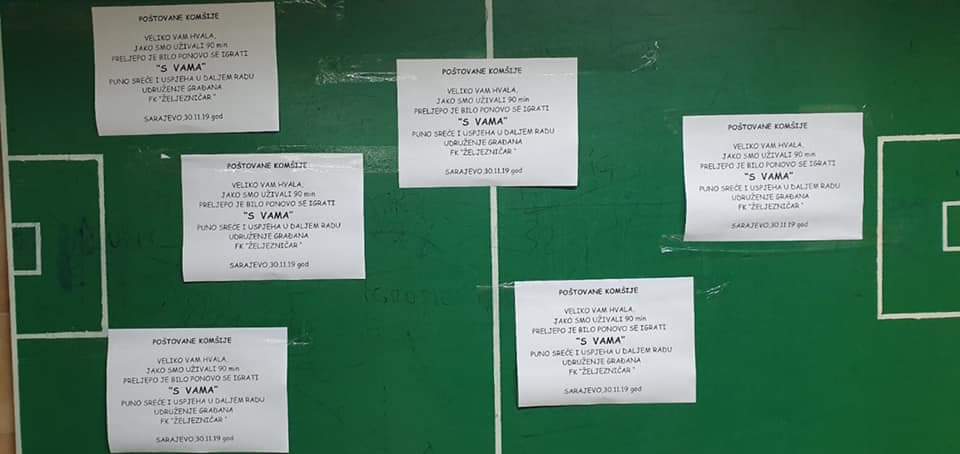 POŠTOVANE KOMŠIJE
VELIKO VAM HVALA,
JAKO SMO UŽIVALI 90 min
PRELJEPO JE BILO PONOVO SE IGRATI
"S VAMA"
PUNO SREĆE I USPJEHA U DALJEM RADU
UDRUŽENJE GRAĐANA
FK "ŽELJEZNIČAR"
SARAJEVO,30.11.19 god
POŠTOVANE KOMŠIJE
VELIKO VAM HVALA,
JAKO SMO UŽIVALI 90 min
PRELJEPO JE BILO PONOVO SE IGRATI
"S VAMA"
PUNO SREĆE I USPJEHA U DALJEM RADU
UDRUŽENJE GRAĐANA
FK "ŽELJEZNIČAR"
SARAJEVO,30.11.19 god
POŠTOVANE KOMŠIJE
VELIKO VAM HVALA,
JAKO SMO UŽIVALI 90 min
PRELJEPO JE BILO PONOVO SE IGRATI
"S VAMA"
PUNO SREĆE I USPJEHA U DALJEM RADU
UDRUŽENJE GRAĐANA
FK "ŽELJEZNIČAR"
SARAJEVO,30.11.19 god
POŠTOVANE KOMŠIJE
VELIKO VAM HVALA,
JAKO SMO UŽIVALI 90 min
PRELJEPO JE BILO PONOVO SE IGRATI
"S VAMA"
PUNO SREĆE I USPJEHA U DALJEM RADU
UDRUŽENJE GRAĐANA
FK "ŽELJEZNIČAR"
SARAJEVO,30.11.19 god
POŠTOVANE KOMŠIJE
VELIKO VAM HVALA,
JAKO SMO UŽIVALI 90 min
PRELJEPO JE BILO PONOVO SE IGRATI
"S VAMA"
PUNO SREĆE I USPJEHA U DALJEM RADU
UDRUŽENJE GRAĐANA
FK "ŽELJEZNIČAR"
SARAJEVO,30.11.19 god
POŠTOVANE KOMŠIJE
VELIKO VAM HVALA,
JAKO SMO UŽIVALI 90 min
PRELJEPO JE BILO PONOVO SE IGRATI
"S VAMA"
PUNO SREĆE I USPJEHA U DALJEM RADU
UDRUŽENJE GRAĐANA
FK "ŽELJEZNIČAR"
SARAJEVO,30.11.19 god